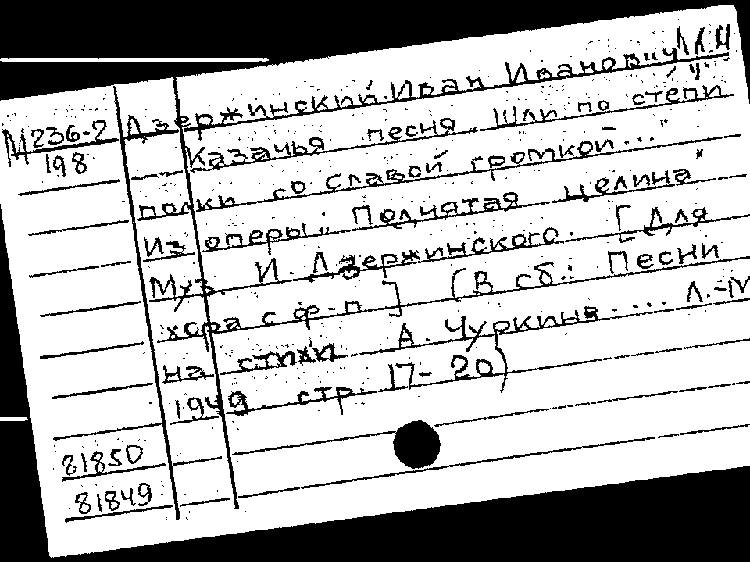 Дзержинский Иван Иванович
М 236-2
198
Казачья песня „Шли по степи
полки со славой громкой..."
Из оперы: „Поднятая целина"
Муз. И. Дзержинского. [Для
хора с ф-п.] (В сб.: Песни
на стихи А. Чуркина.... Л.-М
1949 стр. 17-20)
81850
81849